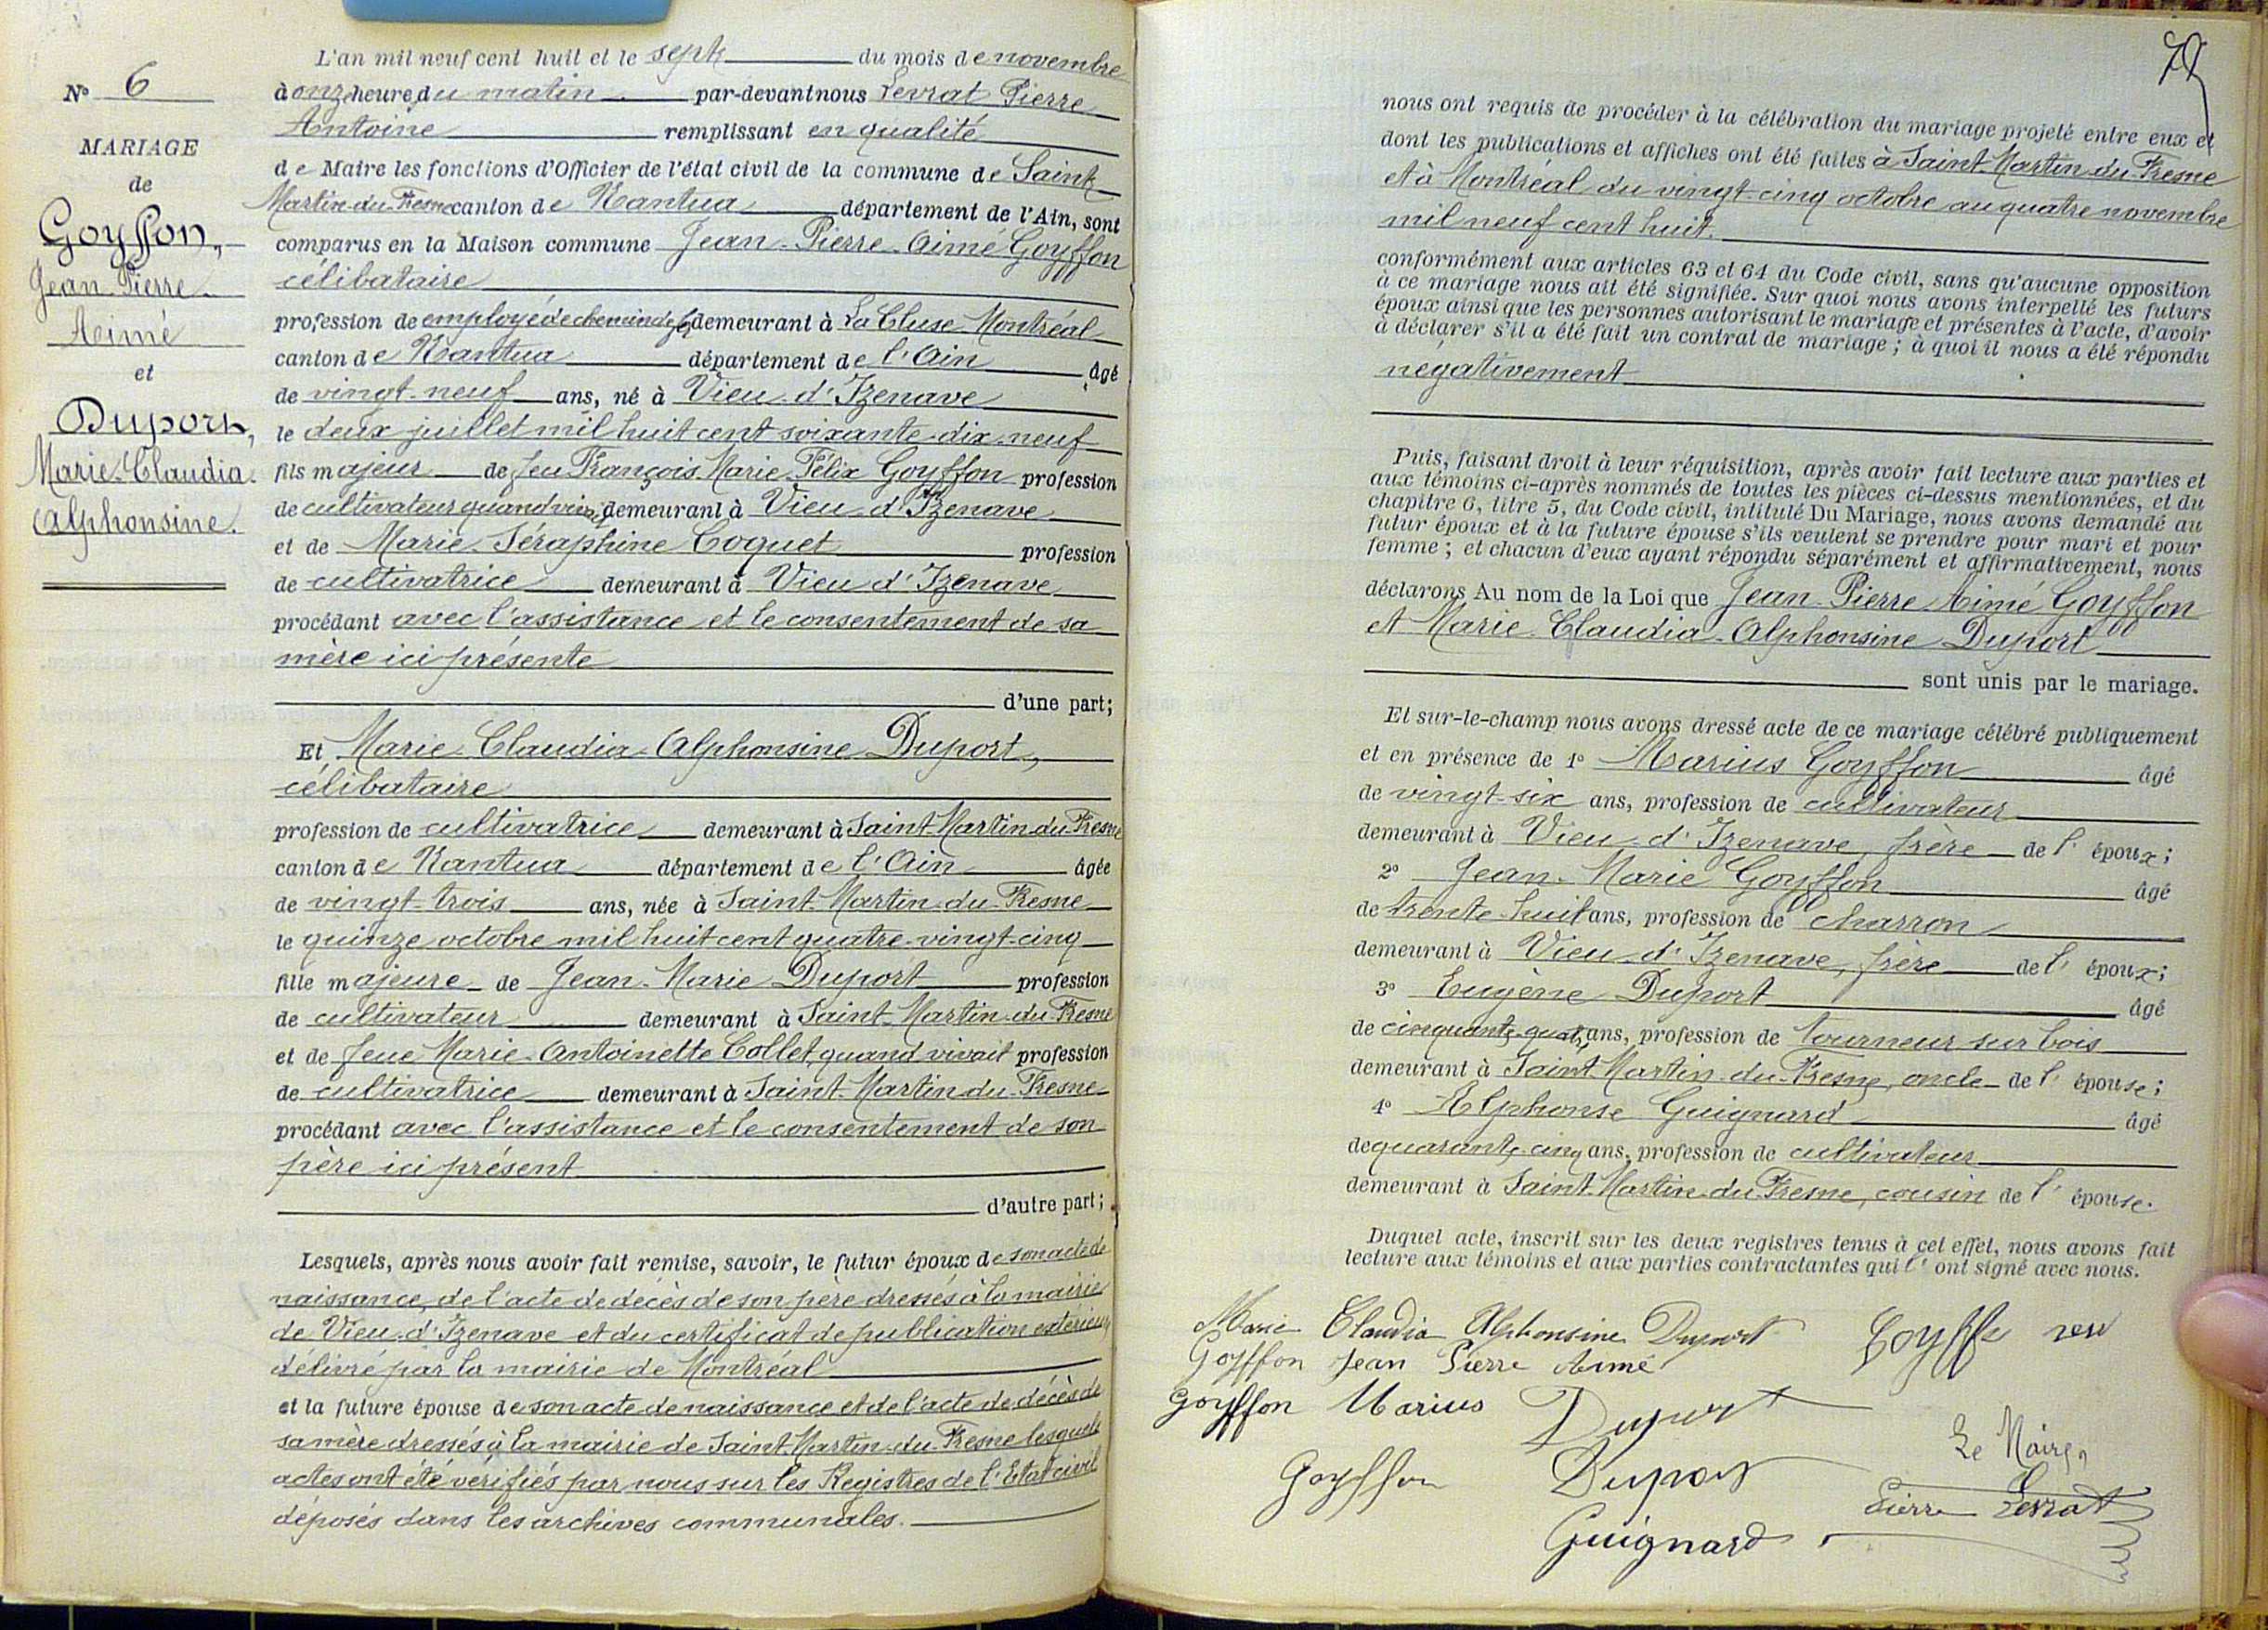 N° 6
MARIAGE
de
Goyffon,
Jean Pierre
Aimé
et
Duport,
Marie-Claudia
Alphonsine.
L'an mil neuf cent huit et le sept du mois de novembre
à onze heure du matin par-devant nous Levrat Pierre
Antoine remplissant en qualité
de Maire les fonctions d'Officier de l'état civil de la commune de Saint
Martin-du-Fresne canton de Nantua département de l'Ain, sont
comparus en la Maison commune Jean-Pierre-Aimé Goyffon
célibataire
profession de employé de chemin de f. demeurant à La Cluse-Montréal
canton de Nantua département de l'Ain âgé
de vingt-neuf ans, né à Vieu-d'Izenave
le deux juillet mil huit cent soixante-dix-neuf
fils majeur de feu François-Marie-Félix Goyffon profession
de cultivateur quand vivait demeurant à Vieu-d'Izenave
et de Marie-Séraphine Coquet profession
de cultivatrice demeurant à Vieu-d'Izenave
procédant avec l'assistance et le consentement de sa
mère ici présente
d'une part;
Et Marie-Claudia-Alphonsine Duport,
célibataire
profession de cultivatrice demeurant à Saint-Martin-du-Fresne
canton de Nantua département de l'Ain âgée
de vingt-trois ans, née à Saint-Martin-du-Fresne
le quinze octobre mil huit cent quatre-vingt-cinq
fille majeure de Jean-Marie Duport profession
de cultivateur demeurant à Saint-Martin-du-Fresne
et de feue Marie-Antoinette Collet, quand vivait profession
de cultivatrice demeurant à Saint-Martin-du-Fresne
procédant avec l'assistance et le consentement de son
père ici présent
d'autre part;
Lesquels, après nous avoir fait remise, savoir, le futur époux de son acte de
naissance, de l'acte de décès de son père dressés à la mairie
de Vieu-d'Izenave et du certificat de publication extérieur
délivré par la mairie de Montréal
et la future épouse de son acte de naissance et de l'acte de décès de
sa mère dressés à la mairie de Saint-Martin-du-Fresne lesquels
actes ont été vérifiés par nous sur les Registres de l'Etat civil
déposés dans les archives communales.
nous ont requis de procéder à la célébration du mariage projeté entre eux et
dont les publications et affiches ont été faites à Saint-Martin-du-Fresne
et à Montréal du vingt-cinq octobre au quatre novembre
mil neuf cent huit.
conformément aux articles 63 et 64 du Code civil, sans qu'aucune opposition
à ce mariage nous ait été signifiée. Sur quoi nous avons interpellé les futurs
époux ainsi que les personnes autorisant le mariage et présentes à l'acte, d'avoir
à déclarer s'il a été fait un contrat de mariage; à quoi il nous a été répondu
négativement
Puis, faisant droit à leur réquisition, après avoir fait lecture aux parties et
aux témoins ci-après nommés de toutes les pièces ci-dessus mentionnées, et du
chapitre 6, titre 5, du Code civil, intitulé Du Mariage, nous avons demandé au
futur époux et à la future épouse s'ils veulent se prendre pour mari et pour
femme; et chacun d'eux ayant répondu séparément et affirmativement, nous
déclarons Au nom de la Loi que Jean-Pierre Aimé Goyffon
et Marie-Claudia-Alphonsine Duport
sont unis par le mariage.
Et sur-le-champ nous avons dressé acte de ce mariage célébré publiquement
et en présence de 1° Marius Goyffon âgé
de vingt-six ans, profession de cultivateur
demeurant à Vieu-d'Izenave, frère de l'époux;
2° Jean-Marie Goyffon âgé
de trente-huit ans, profession de charron
demeurant à Vieu-d'Izenave, frère de l'époux;
3° Eugène Duport âgé
de cinquante-quatre ans, profession de tourneur sur bois
demeurant à Saint-Martin-du-Fresne, oncle de l'épouse;
4° Alphonse Guignard âgé
de quarante-cinq ans, profession de cultivateur
demeurant à Saint-Martin-du-Fresne, cousin de l'épouse.
Duquel acte, inscrit sur les deux registres tenus à cet effet, nous avons fait
lecture aux témoins et aux parties contractantes qui l'ont signé avec nous.
Marie Claudia Alphonsine Duport
Goyffon Jean Pierre Aimé
Goyffon Marius Duport
Le Maire,
Goyffon Duport
Pierre Levrat
Guignard